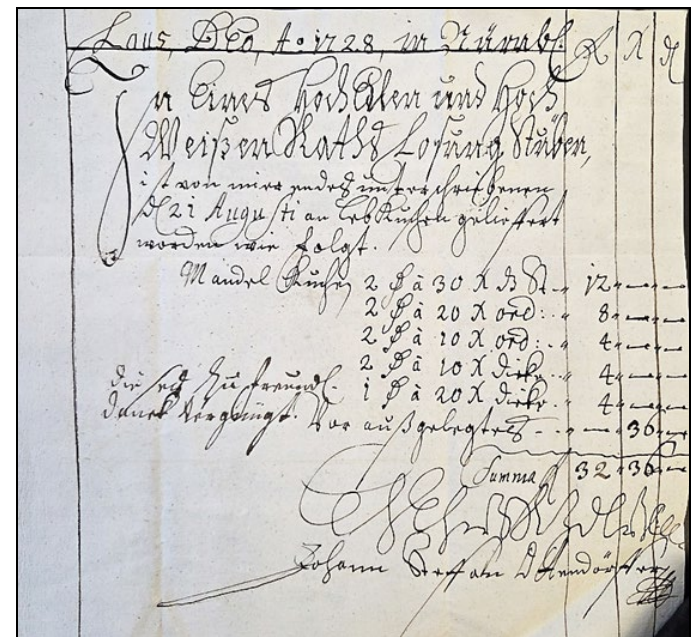 Laus Deo, Ao 1728, in Nürnb. fl X d
In Eines Hoch Edlen und Hoch
Weißen Raths Losung Stuben,
ist von mier endes unterschriebenen
d 21 Augusti an Leb Kuchen gelieffert
worden wie folgt.
Mandel Kuchen 2 à 30 X 12
2 à 20 X ord: 8
2 à 10 X ord: 4
2 à 10 X dicke 4
1 à 20 X dicke 4
die seÿ zu freundl.
danck vergnügt. Vor außgelegtes 36
Summa fl 32 36
Johann Steffan